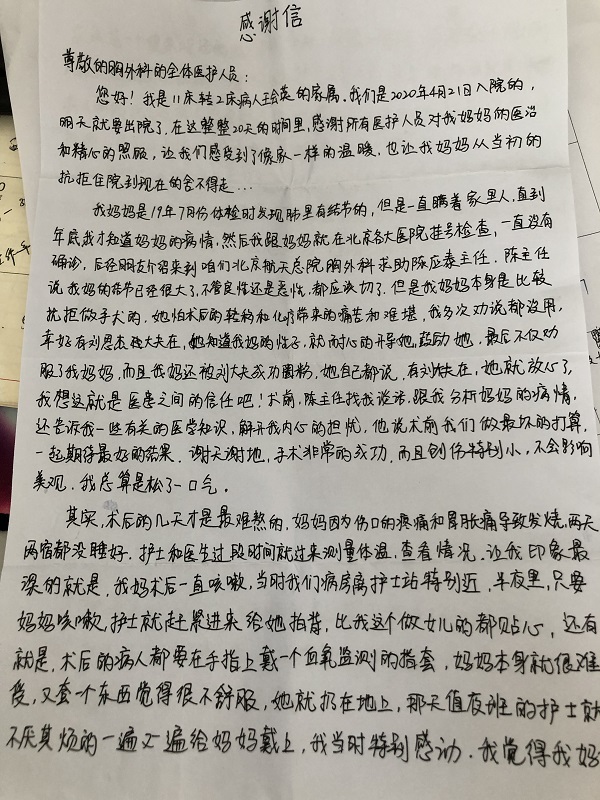 感谢信
尊敬的胸外科的全体医护人员:
您好!我是11床转2床病人王会英的家属。我们是2020年4月21日入院的,
明天就要出院了,在这整整20天的时间里,感谢所有医护人员对我妈妈的医治
和精心的照顾,让我们感受到了像家一样的温暖,也让我妈妈从当初的
抗拒住院到现在的舍不得走...
我妈妈是19年7月份体检时发现肺里有结节的,但是一直瞒着家里人,直到
年底我才知道妈妈的病情,然后我跟妈妈就在北京各大医院挂号检查,一直没有
确诊,后经朋友介绍来到咱们北京航天总院胸外科求助陈应泰主任.陈主任
说我妈的结节已经很大了,不管良性还是恶性,都应该切了.但是我妈妈本身是比较
抗拒做手术的,她怕术后的转移和化疗带来的痛苦和难堪,我多次劝说都没用,
幸好有刘思杰大夫在,她知道我妈的性子,就耐心的开导她,鼓励她,最后不仅劝
服了我妈妈,而且我妈还被刘大夫成功圈粉,她自己都说,有刘大夫在,她就放心了,
我想这就是医患之间的信任吧!术前,陈主任找我谈话,跟我分析妈妈的病情,
还告诉我一些有关的医学知识,解开我内心的担忧,他说术前我们做最坏的打算,
一起期待最好的结果.谢天谢地,手术非常的成功,而且创伤特别小,不会影响
美观.我总算是松了一口气。
其实,术后的几天才是最难熬的,妈妈因为伤口的疼痛和胃胀痛导致发烧,两天
两宿都没睡好.护士和医生过段时间就过来测量体温,查看情况.让我印象最
深的就是,我妈术后一直咳嗽,当时我们病房离护士站特别近,半夜里,只要
妈妈咳嗽,护士就赶紧进来给她拍背,比我这个做女儿的都贴心,还有
就是,术后的病人都要在手指上戴一个血氧监测的指套,妈妈本身就很难
受,又套个东西觉得很不舒服,她就扔在地上,那天值夜班的护士就
不厌其烦的一遍又一遍给妈妈戴上,我当时特别感动.我觉得我妈